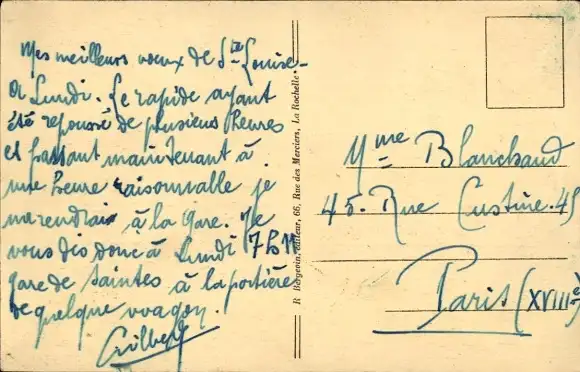 Mes meilleurs voeux de Ste Louise -
A Lundi. Le rapide ayant
été repoussé de plusieurs heures
et passant maintenant à
une heure raisonnable je
me rendrai à la gare. Je
vous dis donc à Lundi 7h11
gare de Saintes à la portière
de quelque wagon.
R. Bergevin, éditeur, 66, Rue des Merciers, La Rochelle
Mme Blanchaud
45. Rue Custine. 45
Paris (XVIIIe)